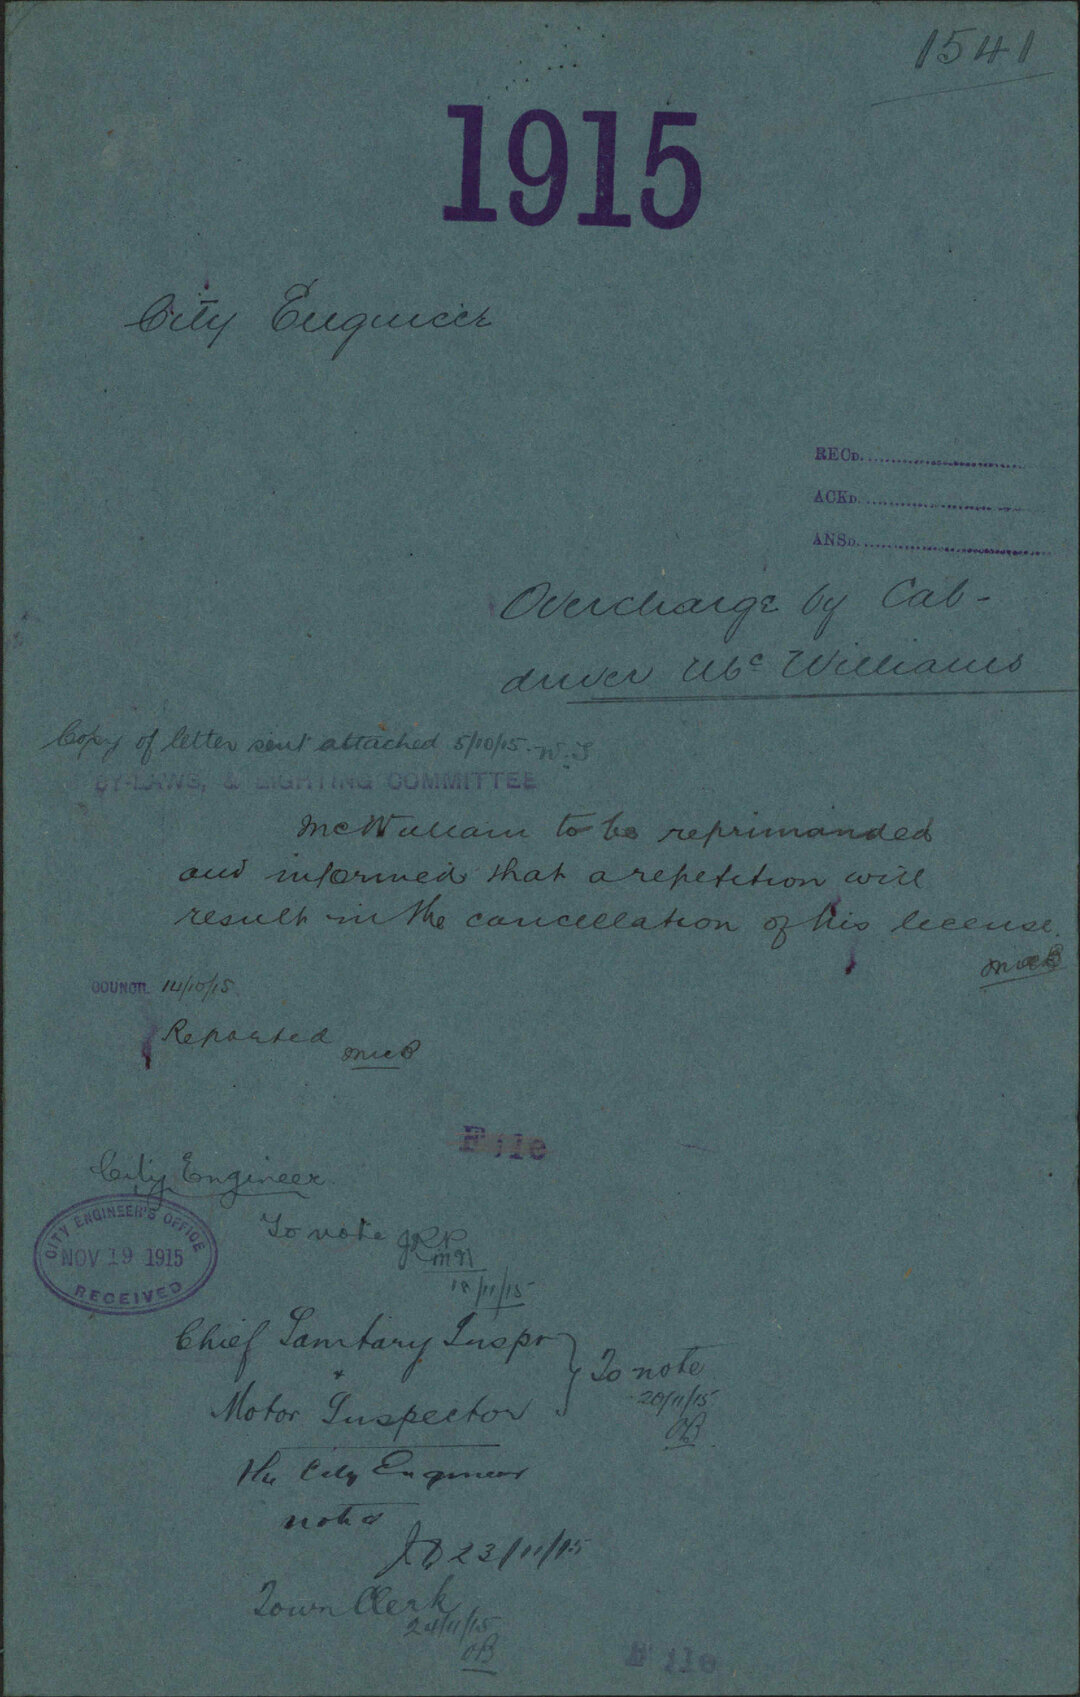 1541
1915
City Engineer
RECD.
ACKD.
ANSD.
Overcharge by Cab-
driver McWilliams
Copy of letter sent attached 5/10/15. W.S
BY-LAWS, & LIGHTING COMMITTEE
McWilliam to be reprimanded
and informed that a repetition will
result in the cancellation of his license.
COUNCIL 14/10/15
Reported
File
City Engineer
To note
18/11/15
CITY ENGINEER'S OFFICE
NOV 19 1915
RECEIVED
Chief Sanitary Inspr
&
Motor Inspector
} To note
20/11/15
The City Engineer
noted
23/11/15
Town Clerk
24/11/15
File